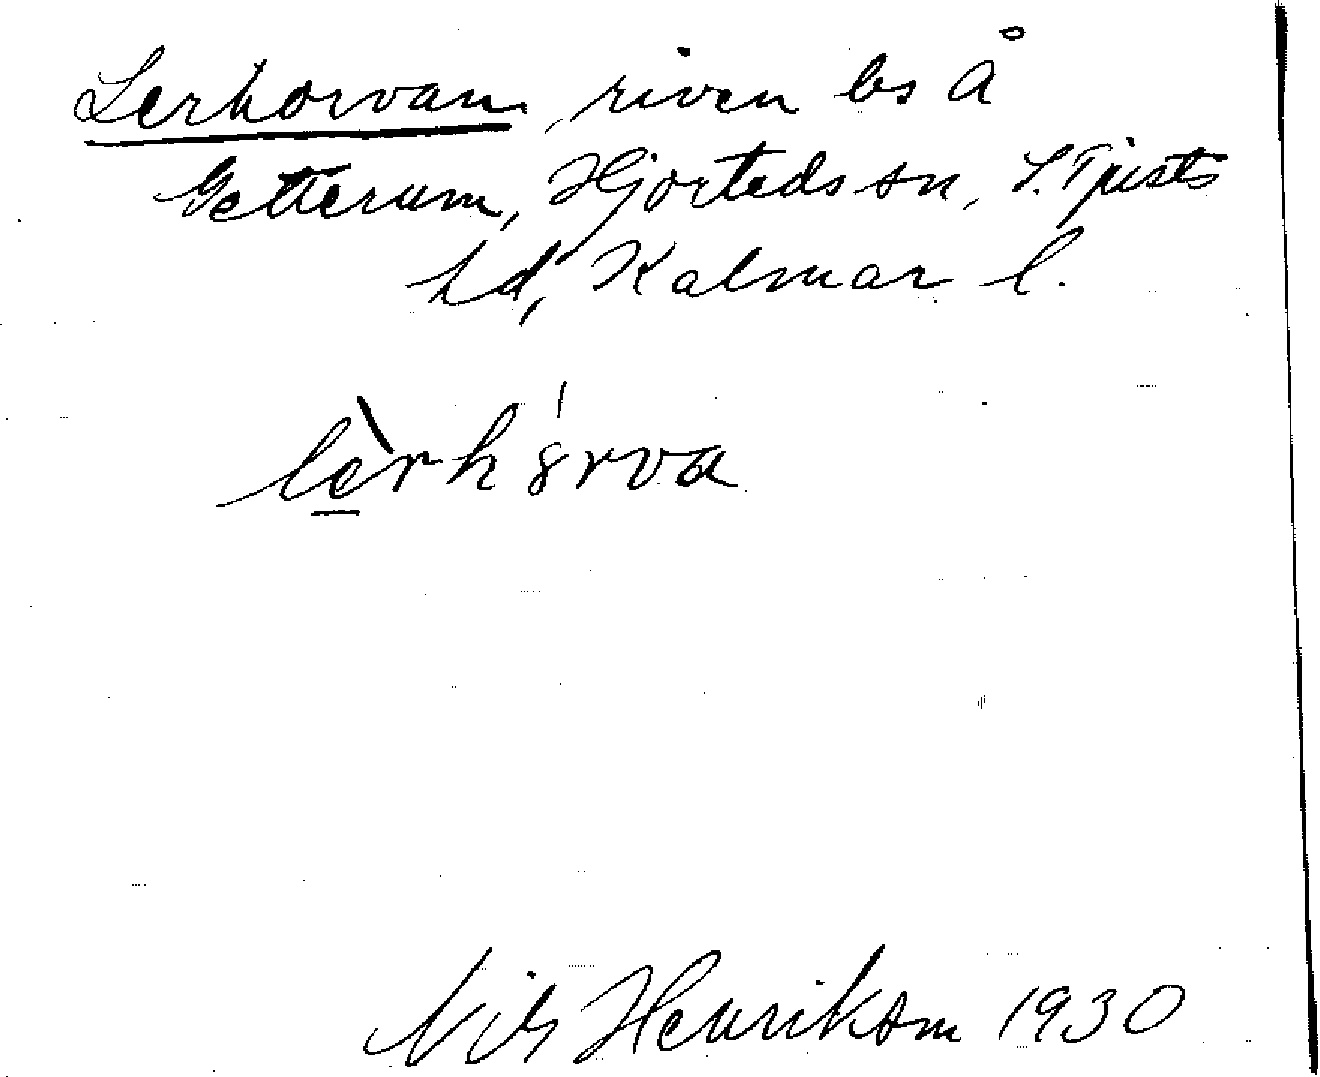 Lerhorvan, riven bs å
Getterum, Hjorteds sn, S. Tjusts
hd, Kalmar l.
lèrh8́rva
Nils Henrikson 1930